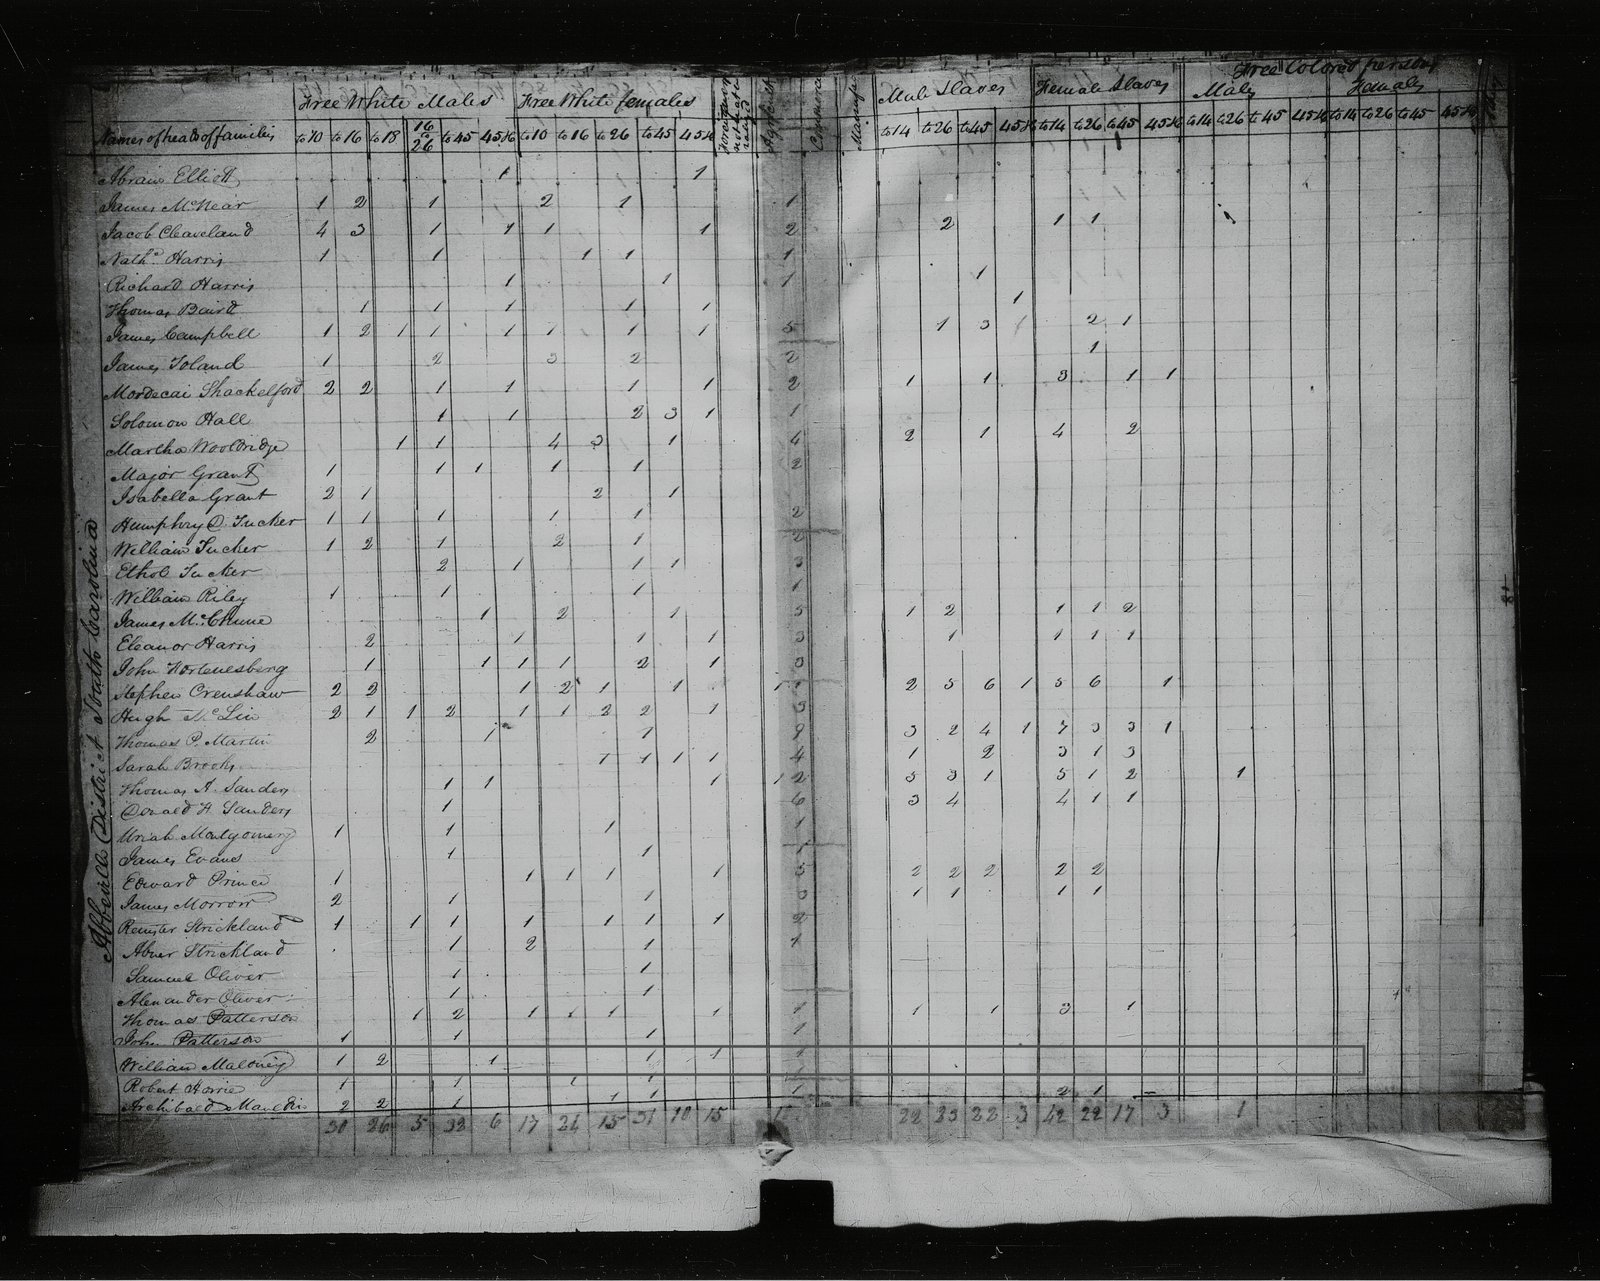 Free Colored persons
Free White Males Free White females Male Slaves Female Slaves Males Females
Names of heads of families to 10 to 16 to 18 16 to 26 to 45 45 &c to 10 to 16 to 26 to 45 45 &c Foreigners not naturalized Agricult Commerce Manuf to 14 to 26 to 45 45 &c to 14 to 26 to 45 45 &c to 14 to 26 to 45 45 &c to 14 to 26 to 45 45 &c
Abram Elliott 1 1
James McNear 1 2 1 2 1 1
Jacob Cleaveland 4 3 1 1 1 1 2 2 1 1
Nathl. Harris 1 1 1 1 1
Richard Harris 1 1 1 1
Thomas Baird 1 1 1 1 1 1
James Campbell 1 2 1 1 1 1 1 1 5 1 3 1 2 1
James Toland 1 2 3 2 2 1
Mordecai Shackelford 2 2 1 1 1 1 2 1 1 3 1 1
Solomon Hall 1 1 2 3 1 1
Martha Wooldridge 1 1 4 3 1 4 2 1 4 2
Major Grant 1 1 1 1 1 2
Isabella Grant 2 1 2 1
Humphry D. Tucker 1 1 1 1 1 2
William Tucker 1 2 1 2 1 2
Ethol Tucker 2 1 1 1 3
William Riley 1 1 1 1
James McClune 1 2 1 5 1 2 1 1 2
Eleanor Harris 2 1 1 1 3 1 1 1 1
John 1 1 1 1 2 1 3
Stephen Crenshaw 2 2 1 2 1 1 1 2 5 6 1 5 6 1
Hugh McLin 2 1 1 2 1 1 2 2 1 3
Thomas P. Martin 2 1 1 9 3 2 4 1 7 3 3 1
Sarah Brooks 1 1 1 1 4 1 2 3 1 3
Thomas A. Sanders 1 1 1 1 2 5 3 1 5 1 2 1
Donald H. Sanders 1 6 3 4 4 1 1
Uriah Montgomery 1 1 1 1
James Evans 1 1 1
Edward Prince 1 1 1 1 1 5 2 2 2 2 2
James Morrow 2 1 1 3 1 1 1 1
Strickland 1 1 1 1 1 1 1 2
Abner Strickland 1 2 1 1
Samuel Oliver 1 1
Alexander Oliver 1 1
Thomas Patterson 1 2 1 1 1 1 1 1 1 3 1
John Patterson 1 1 1 1
William Maloney 1 2 1 1 1 1
Robert 1 1 1 1 1
Archibald Mauldin 2 2 1 1 1 1 2 1
30 26 5 32 6 17 21 15 31 10 15 1 22 23 22 3 42 22 17 3 1
Abbeville District South Carolina